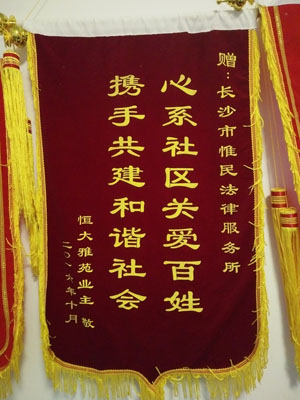 赠：长沙市惟民法律服务所
心系社区关爱百姓
携手共建和谐社会
恒大雅苑业主 敬